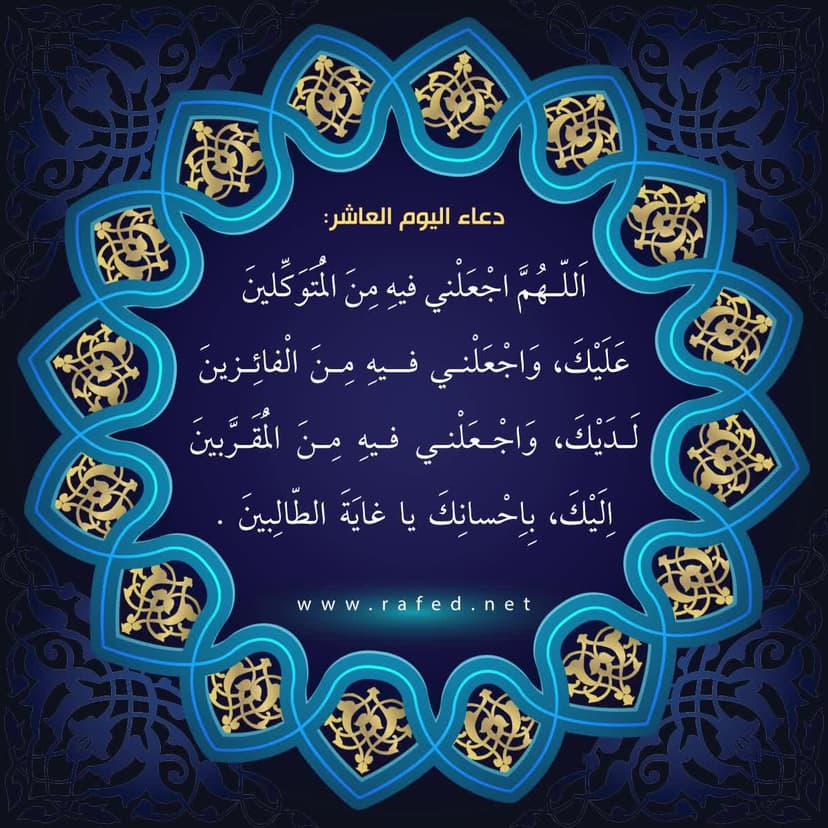 دعاء اليوم العاشر:
اَللّـهُمَّ اجْعَلْني فيهِ مِنَ الْمُتَوَكِّلينَ
عَلَيْكَ، وَاجْعَلْنـي فـيهِ مِـنَ الْفائِـزينَ
لَـدَيْكَ، وَاجْـعَلْنـي فـيهِ مِـنَ الْمُقَـرَّبينَ
اِلَيْكَ، بِاِحْسانِكَ يا غايَةَ الطّالِبينَ .
www.rafed.net